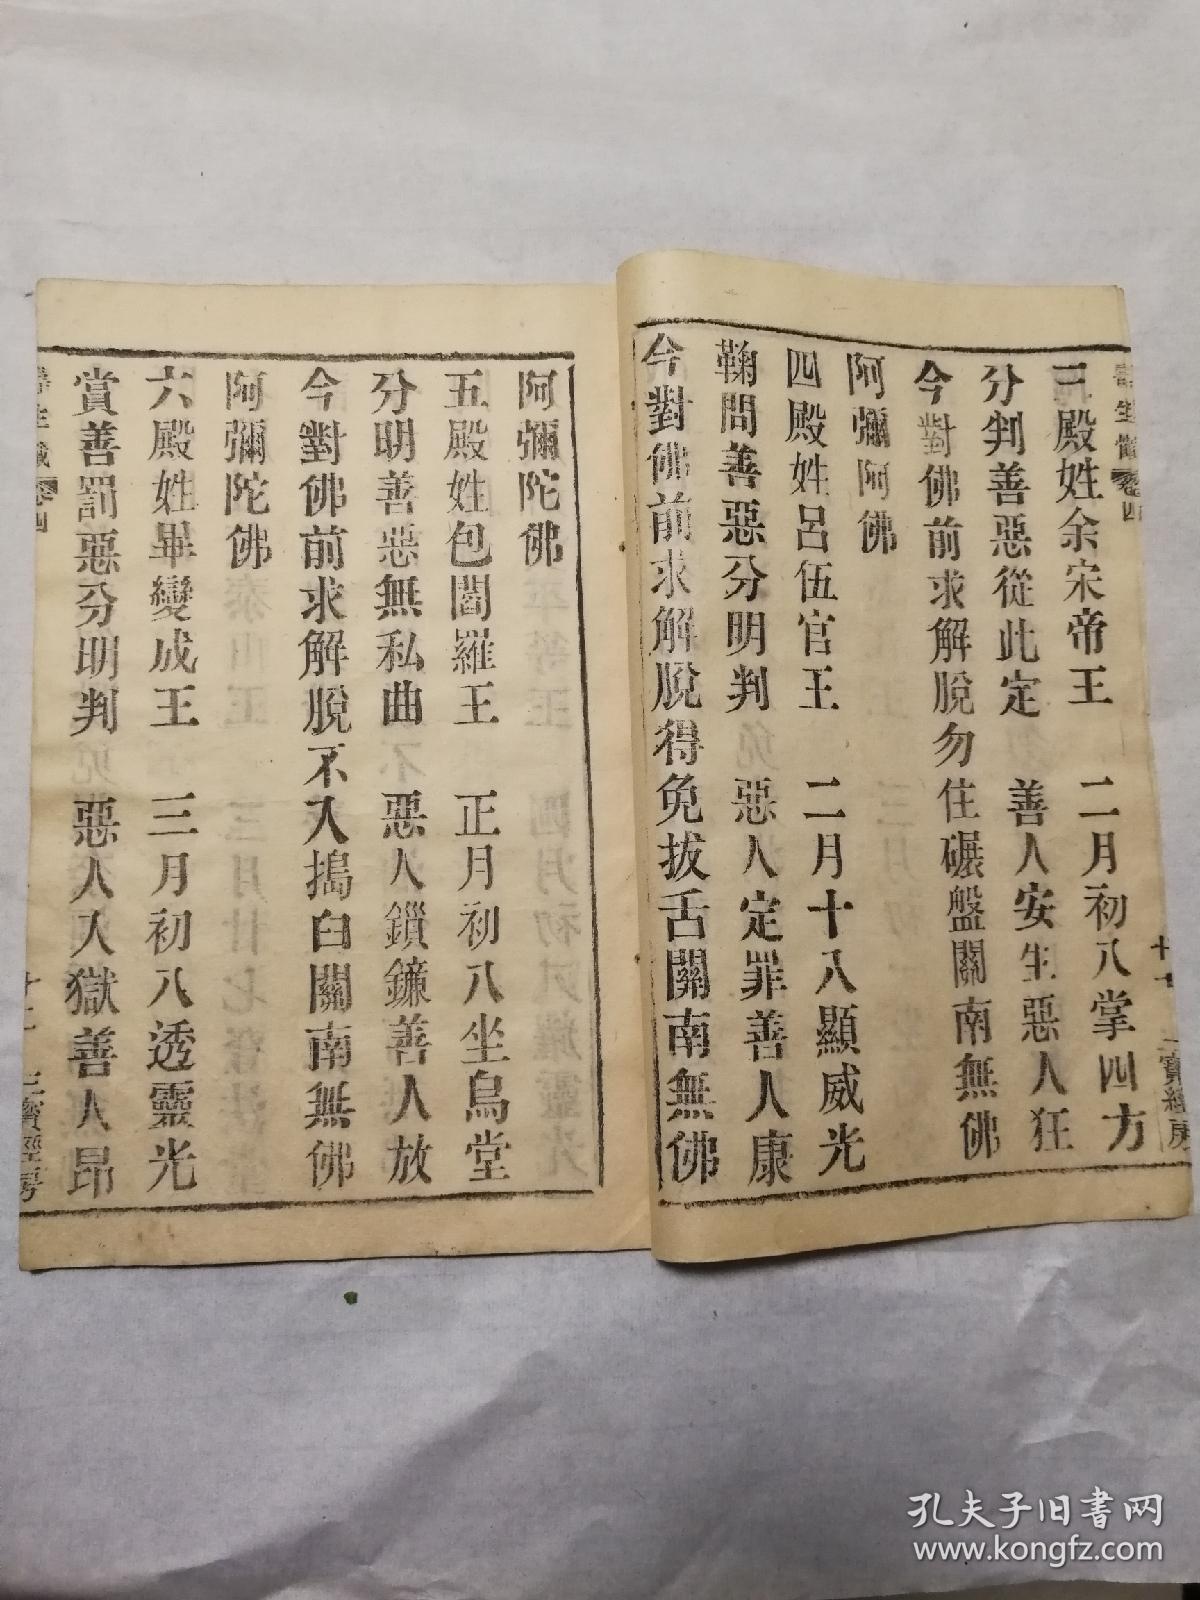 三殿姓余宋帝王　二月初八掌四方
分判善惡從此定　善人安生惡人狂
今對佛前求解脫勿住碾盤關南無佛
阿彌阿佛
四殿姓呂伍官王　二月十八顯威光
鞠問善惡分明判　惡人定罪善人康
今對佛前求解脫得免拔舌關南無佛
阿彌陀佛
五殿姓包閻羅王　正月初八坐烏堂
分明善惡無私曲　惡人鎖鐮善人放
今對佛前求解脫不入搗臼關南無佛
阿彌陀佛
六殿姓畢變成王　三月初八透靈光
賞善罰惡分明判　惡人入獄善人昂
卷四
十二
三寶經房
孔夫子旧书网
www.kongfz.com